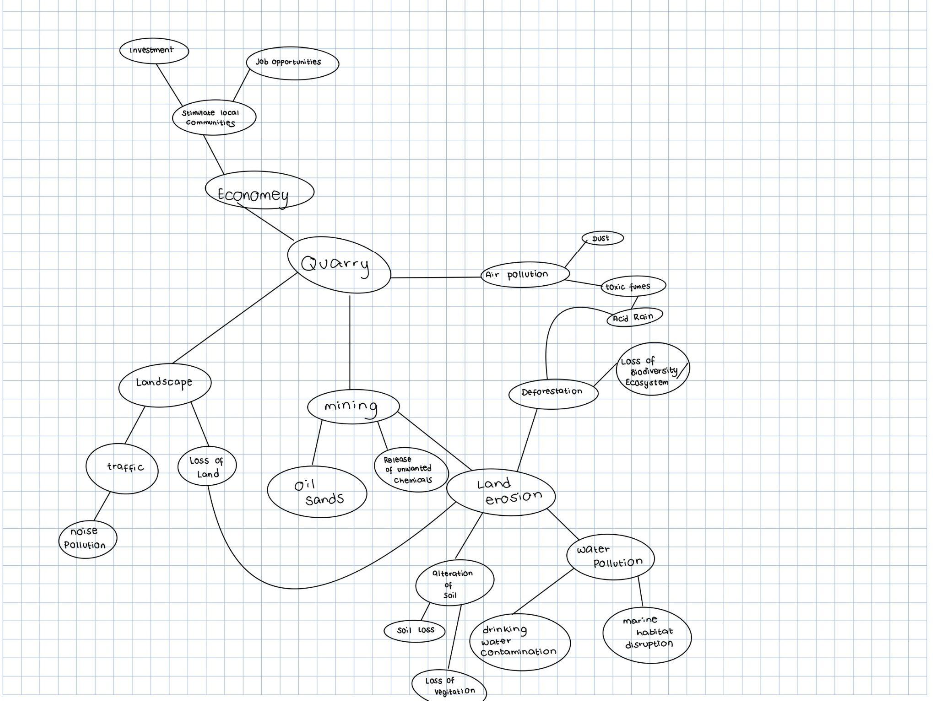 Investment
Job opportunities
Stimulate local
communities
Economey
Quarry
Dust
Air pollution
toxic fumes
Acid Rain
Loss of
Biodiversity/
Ecosystem
Landscape
Deforestation
mining
traffic
Loss of
Land
Release
of unwanted
chemicals
Oil
Sands
Land
erosion
noise
Pollution
water
Pollution
Alteration
of
Soil
Soil Loss
drinking
water
contamination
marine
habitat
disruption
Loss of
Vegitation